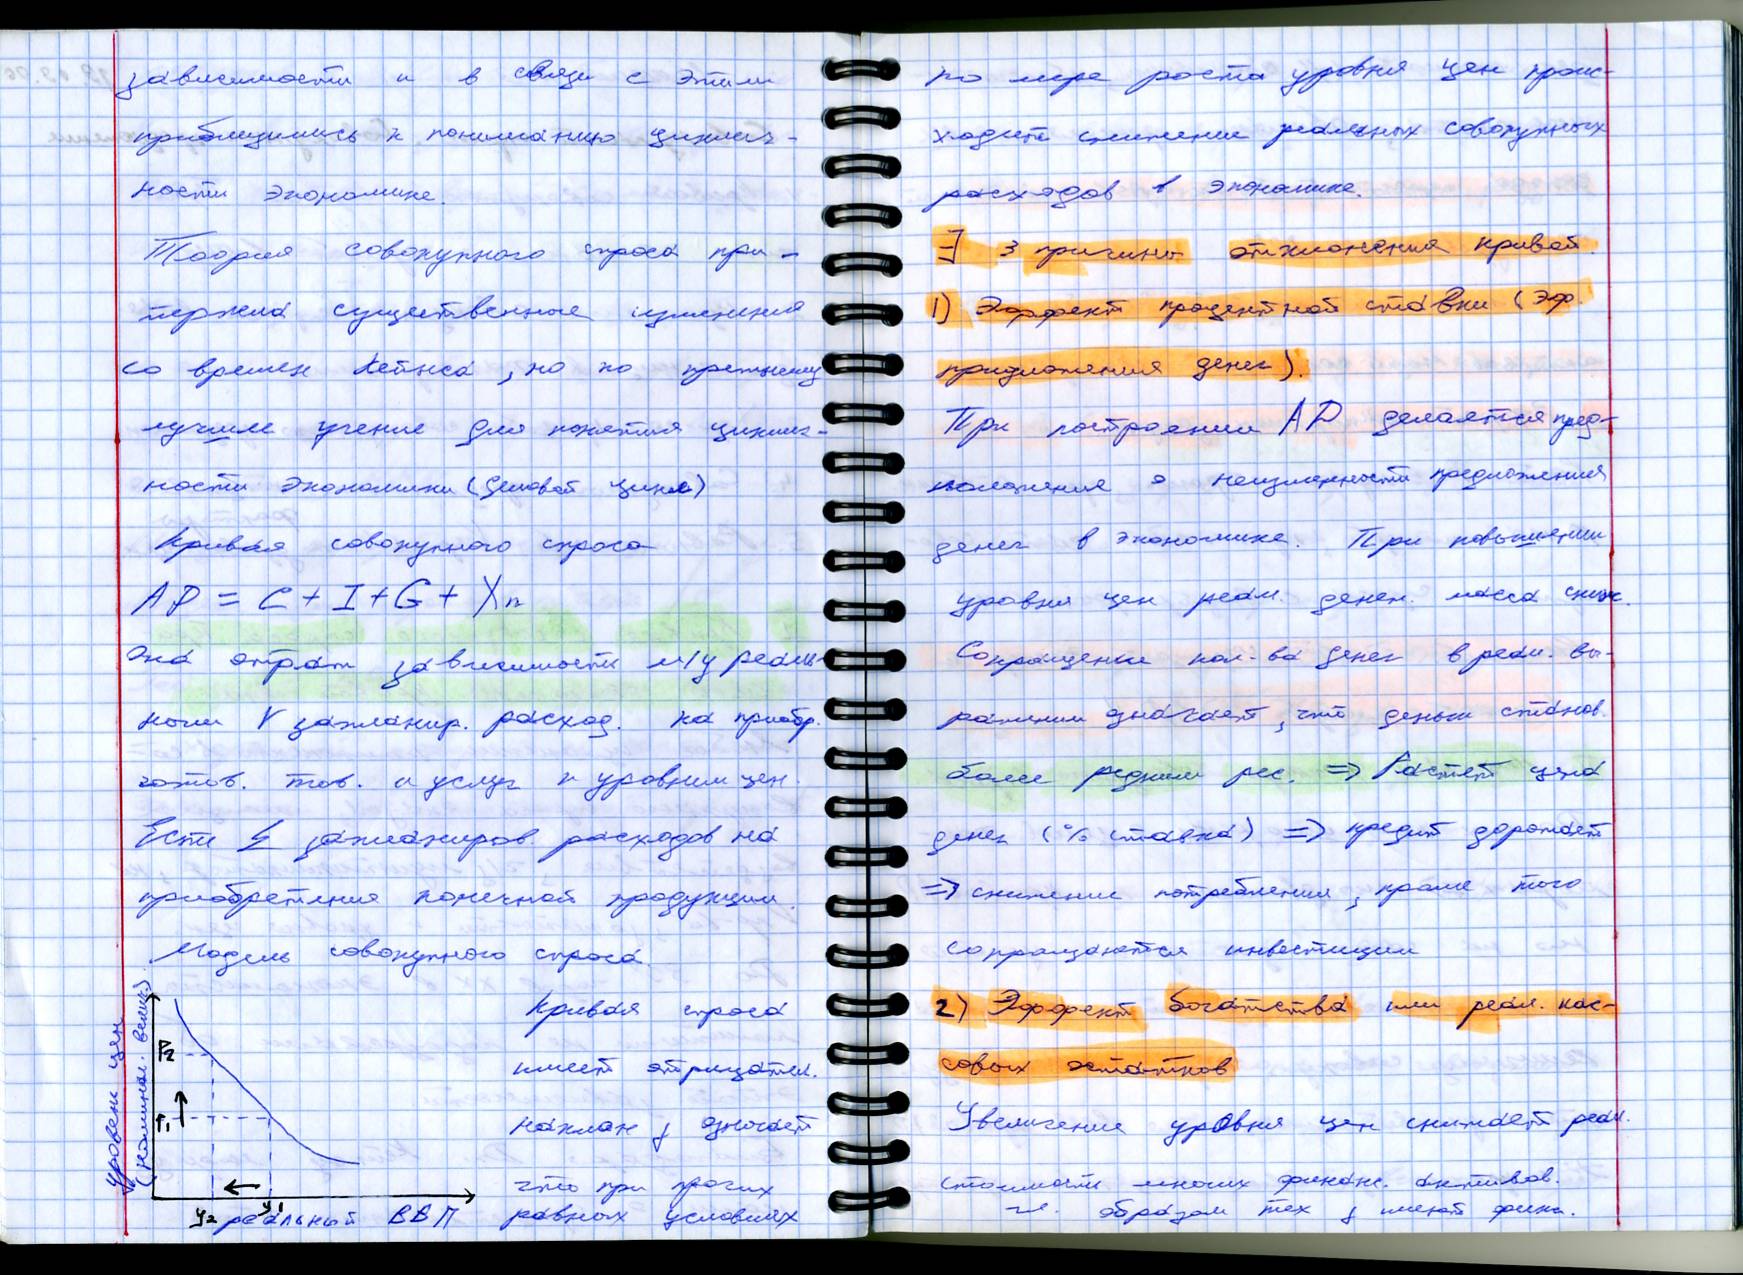 зависимости и в связи с этим
приблизились к пониманию циклич-
ности экономике.
Теория совокупного спроса пре-
терпела существенные изменения
со времен Кейнса, но по прежнему
лучшее учение для понятия циклич-
ности экономики (деловой цикл)
Кривая совокупного спроса
AD = C + I + G + Xn
Она отраж зависимость м/у реаль-
ными V запланир. расход. на приобр.
готов. тов. и услуг и уровнем цен.
Есть Σ запланиров. расходов на
приобретения конечной продукции.
Модель совокупного спроса.
уровень цен
(номинал. велич.)
P2
P1
y2 y1
реальный ВВП
Кривая спроса
имеет отрицател.
наклон, означает
что при прочих
равных условиях
по мере роста уровня цен проис-
ходит снижение реальных совокупных
расходов в экономике.
∃ 3 причины отклонения кривой.
1) Эффект процентной ставки (Эф.
предложения денег).
При построении AD делается пред-
положение о неизменности предложения
денег в экономике. При повышении
уровня цен реал. денеж. масса сниж.
Сокращение кол-ва денег в реал. вы-
ражении означает, что деньги станов.
более редким рес. => Растет цена
денег (% ставка) => кредит дорожает
=> снижение потребления, кроме того
сокращаются инвестиции
2) Эффект богатства или реал. кас-
совых остатков
Увеличение уровня цен снижает реал.
стоимость многих финанс. активов.
образом тех, имеют фин.